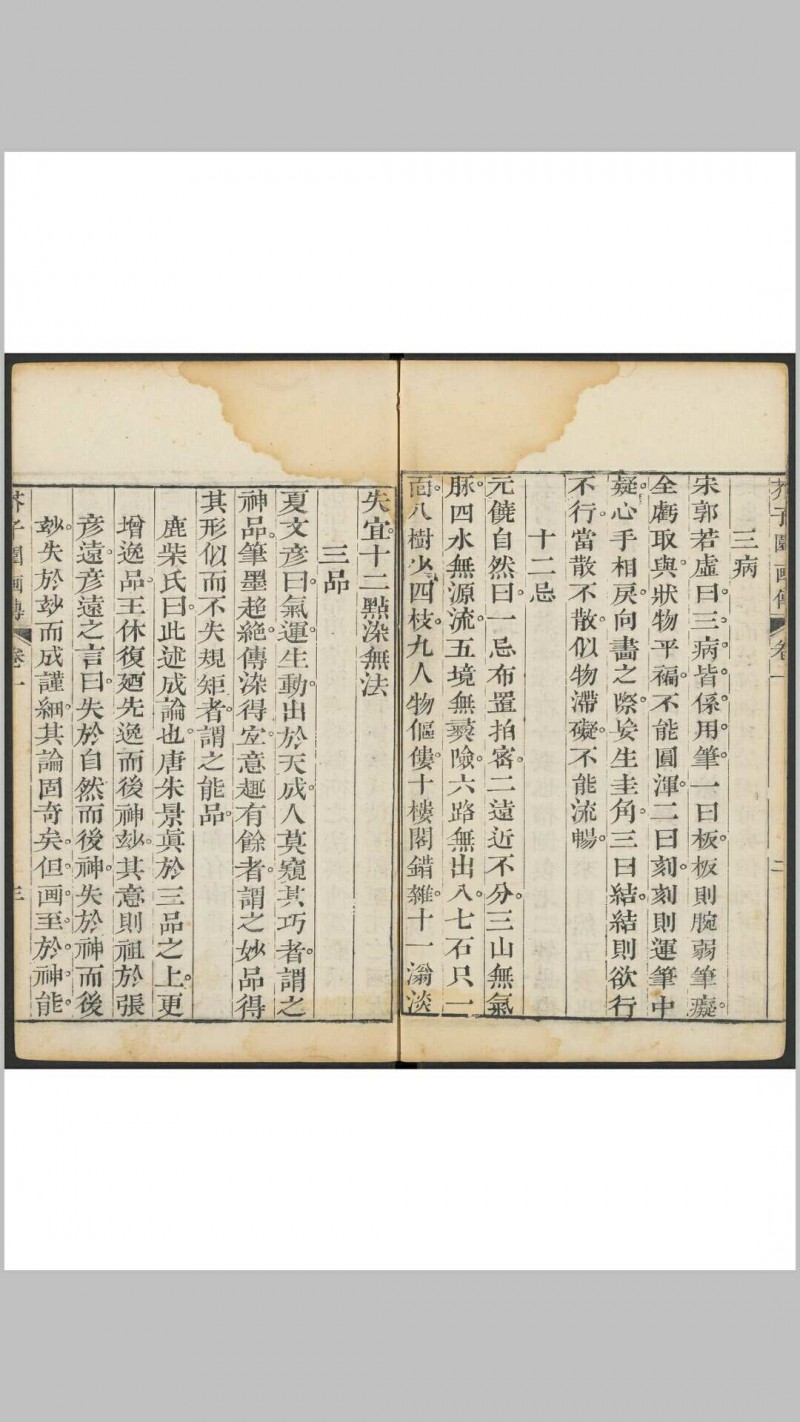 芥子園畫傳 卷一 二
三病
宋郭若虛曰三病皆係用筆一曰板板則腕弱筆癡
全虧取與狀物平褊不能圓渾二曰刻刻則運筆中
凝心手相戾向畫之際妄生圭角三曰結結則欲行
不行當散不散似物滯礙不能流暢
十二忌
元饒自然曰一忌布置拍密二遠近不分三山無氣
脉四水無源流五境無夷險六路無出入七石只一
面八樹少四枝九人物傴僂十樓閣錯雜十一滃淡
失宜十二點染無法
三品
夏文彥曰氣運生動出於天成人莫窺其巧者謂之
神品筆墨超絶傳染得宜意趣有餘者謂之妙品得
其形似而不失規矩者謂之能品
鹿柴氏曰此述成論也唐朱景眞於三品之上更
增逸品王休復廼先逸而後神玅其意則祖於張
彥遠彥遠之言曰失於自然而後神失於神而後
玅失於玅而成謹細其論固奇矣但画至於神能
芥子園画傳 卷一 三